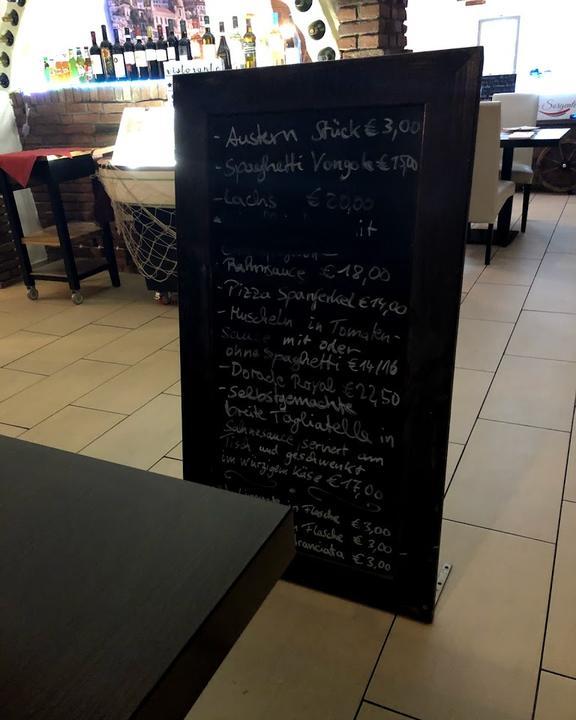 ristorante
- Austern Stück € 3,00
- Spaghetti Vongole € 15,00
- Lachs € 20,00
it
Rahmsauce € 18,00
- Pizza Spanferkel € 14,00
- Muscheln in Tomaten-
Sauce mit oder
ohne Spaghetti € 14/16
- Dorade Royal € 22,50
- selbstgemachte
breite Tagliatella in
Sahnesauce, serviert am
Tisch und geschwenkt
im würzigem Käse € 17,00
Flasche € 3,00
Flasche € 3,00
Aranciata € 3,00